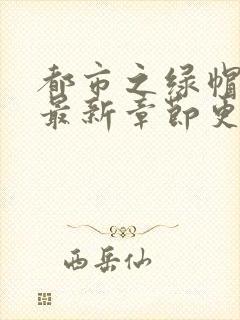 都市之绿帽
最新章节更
西岳仙